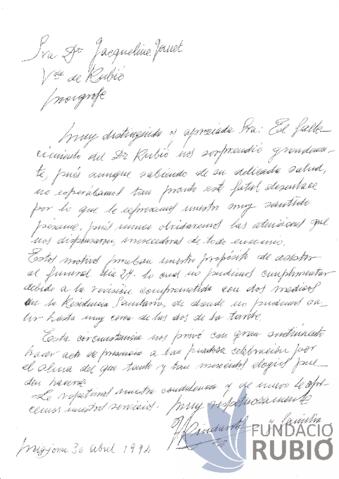 Sra Dª Jacqueline Jouet
Vda de Rubió
Muy distinguida y apreciada Sra: El falle-
cimiento del Dr Rubió nos sorprendió grandemen-
te, pués aunque sabiendo de su delicada salud,
no esperábamos tan pronto este fatal desenlace
por lo que le expresamos nuestro muy sentido
pésame, pués nunca olvidaremos las atenciones que
nos dispensaron merecedoras de todo
Estos motivos nuestro propósito de asistir
al funeral día 27, lo cual no pudimos cumplimentar
debido a la revisión comprometida con dos médicos
en la Residencia Sanitaria, de donde no pudimos sa-
lir hasta muy cerca de las dos de la tarde.
Esta circunstancia nos privó con gran sentimiento
hacer acto de presencia a tan celebración por
el alma del que tanto y tan merecidos elogios pue-
den hacerse.
Le repetimos nuestra condolencia y de nuevo le ofre-
cemos nuestros servicios. Muy respetuosamente
y familia
30 abril 1994
FUNDACIÓ
RUBIÓ